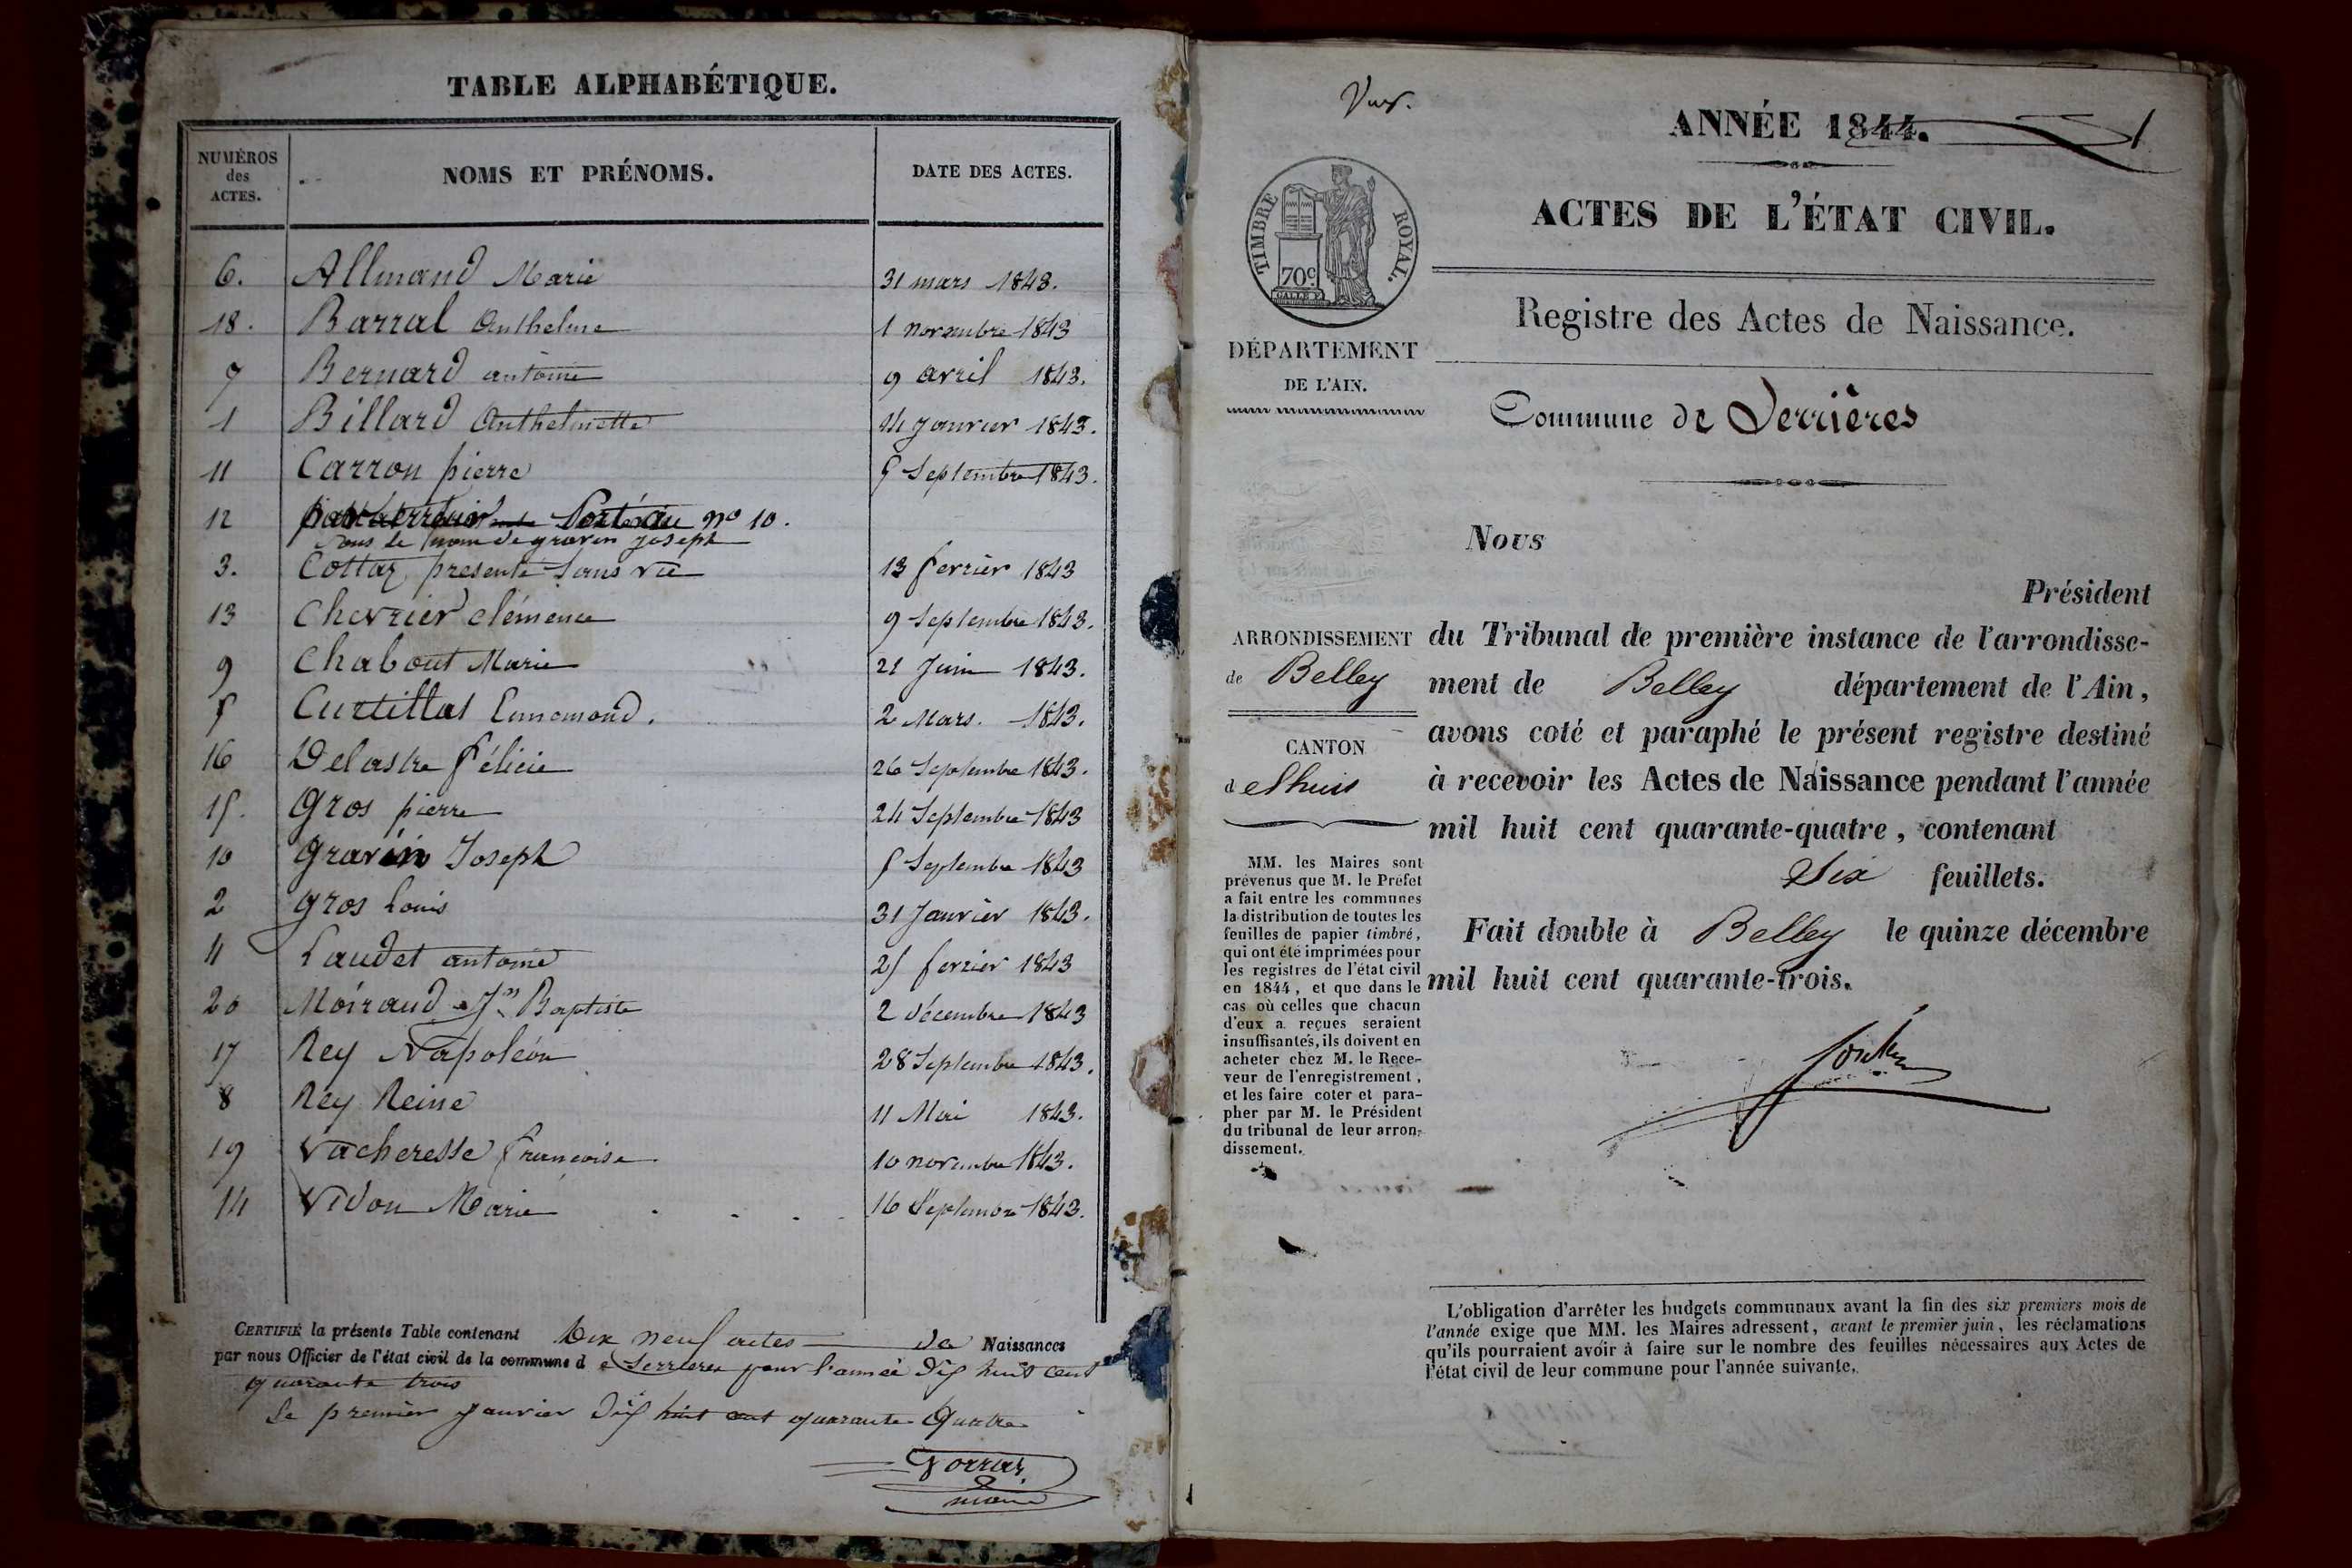 TABLE ALPHABÉTIQUE.
NUMÉROS des ACTES. NOMS ET PRÉNOMS. DATE DES ACTES.
6. Allmand Marie 31 mars 1843.
18. Barral Anthelme 1 novembre 1843
7 Bernard antoine 9 avril 1843.
1 Billard Anthelmette 14 Janvier 1843.
11 Carron pierre 5 Septembre 1843.
12 par erreur Porté au no 10.
sous le nom de gravin Joseph
3. Cottaz presenté Sans vie 13 fevrier 1843
13 Chevrier clémence 9 Septembre 1843.
9 Chabout Marie 21 Juin 1843.
5 Curtillat Ennemond. 2 Mars. 1843.
16 Delastre Félicie 26 Septembre 1843.
15. Gros pierre 24 Septembre 1843
10 Gravin Joseph 5 Septembre 1843
2 gros Louis 31 Janvier 1843.
4 Laudet antoine 25 fevrier 1843
20 Moiraud Jn Baptiste 2 décembre 1843
17 Rey Napoléon 28 Septembre 1843.
8 Rey Reine 11 Mai 1843.
19 Vacheresse françoise 10 novembre 1843.
14 Vidon Marie 16 Septembre 1843.
CERTIFIÉ la présente Table contenant Dix neuf actes de Naissances
par nous Officier de l'état civil de la commune de Serrieres pour l'année Dix huit cent
quarante trois
Le premier Janvier Dix huit cent quarante Quatre
maire
ANNÉE 1844. 1
TIMBRE ROYAL.
70c
ACTES DE L'ÉTAT CIVIL.
Registre des Actes de Naissance.
DÉPARTEMENT
DE L'AIN.
Commune de Serrières
ARRONDISSEMENT
de Belley
CANTON
d elhuis
MM. les Maires sont
prévenus que M. le Préfet
a fait entre les communes
la distribution de toutes les
feuilles de papier timbré,
qui ont été imprimées pour
les registres de l'état civil
en 1844, et que dans le
cas où celles que chacun
d'eux a reçues seraient
insuffisantes, ils doivent en
acheter chez M. le Rece-
veur de l'enregistrement,
et les faire coter et para-
pher par M. le Président
du tribunal de leur arron-
dissement.
Nous
Président
du Tribunal de première instance de l'arrondisse-
ment de Belley département de l'Ain,
avons coté et paraphé le présent registre destiné
à recevoir les Actes de Naissance pendant l'année
mil huit cent quarante-quatre, contenant
Six feuillets.
Fait double à Belley le quinze décembre
mil huit cent quarante-trois.
L'obligation d'arrêter les budgets communaux avant la fin des six premiers mois de
l'année exige que MM. les Maires adressent, avant le premier juin, les réclamations
qu'ils pourraient avoir à faire sur le nombre des feuilles nécessaires aux Actes de
l'état civil de leur commune pour l'année suivante.